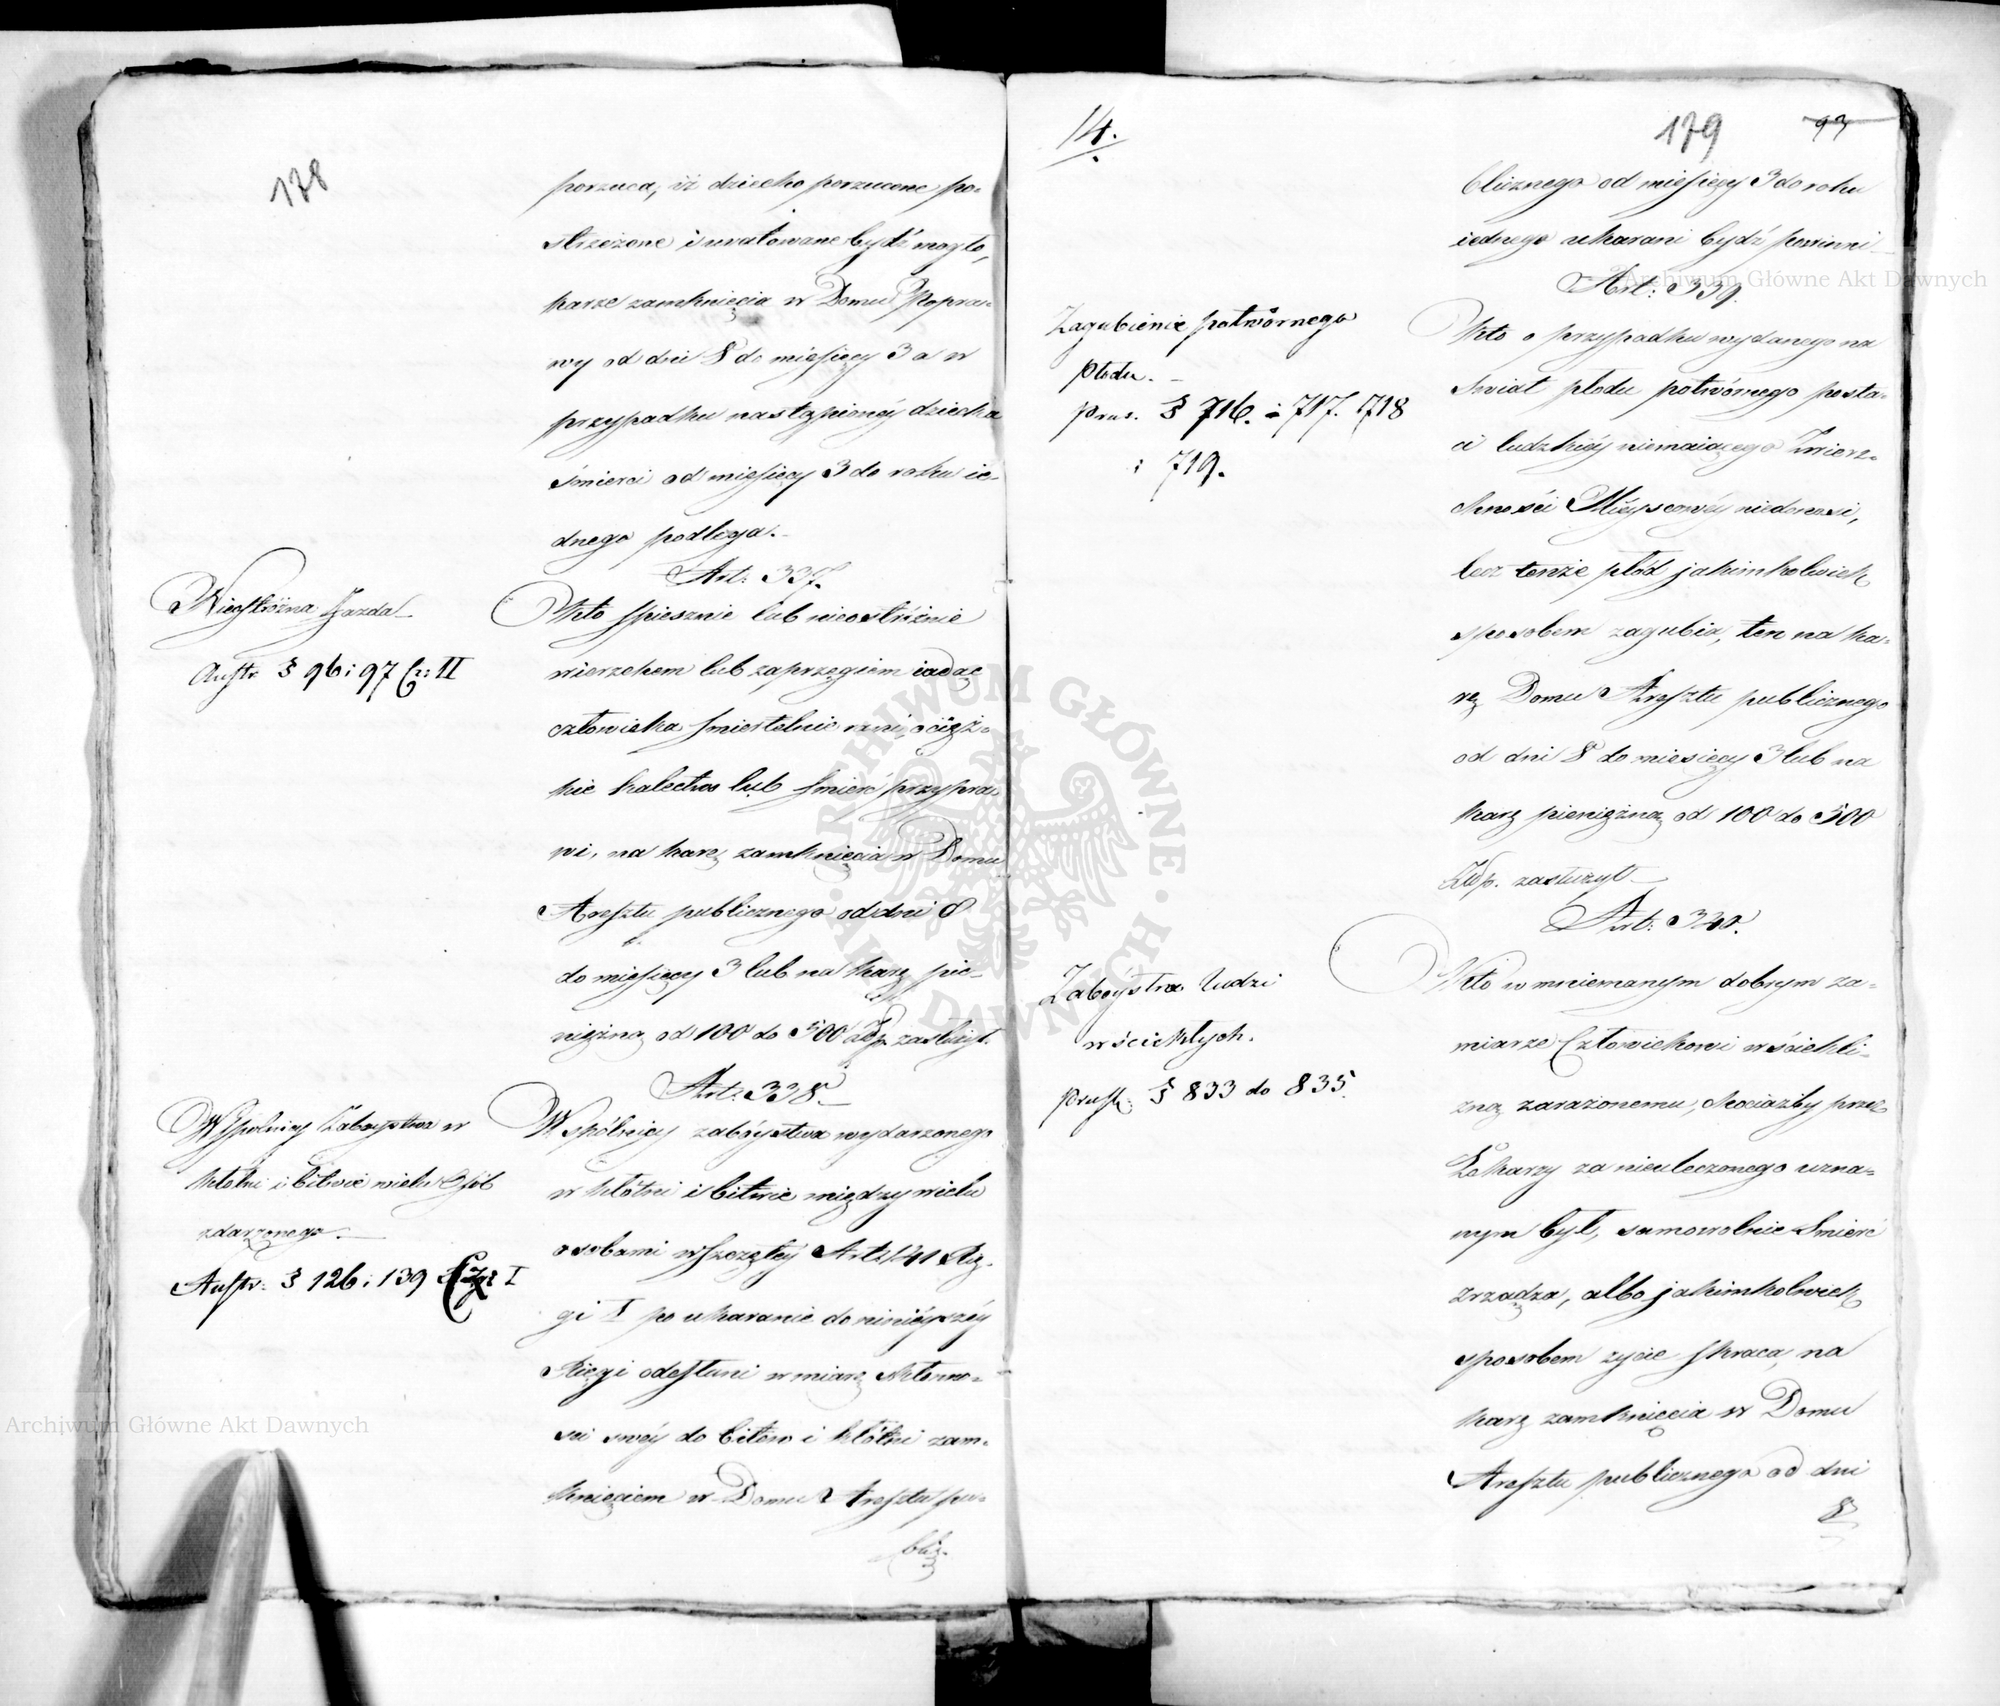 178
porzuca, iż dziecko porzucone po-
strzeżone i uratowane bydź mogło,
karze zamknięcia w Domu Popra-
wy od dni 8 do miesięcy 3 a w
przypadku nastąpionéy dziecka
śmierci od miesięcy 3 do roku ie-
dnego podlega.
Art: 337.
Nieostróżna Jazda
Austr § 96 i 97 Cz: II
Kto spiesznie lub nieostróżnie
wierzchem lub zaprzęgiem iadąc
człowieka śmiertelnie rani, o cięż-
kie kalectwo lub śmierć przypra-
wi, na karę zamknięcia w Domu
Aresztu publicznego od dni 8
do miesięcy 3 lub na karę pie-
niężną od 100 do 500 Złp. zasłużył.
Art: 338.
Wspólnicy Zaboystwa w
kłótni i bitwie wielu Osób
zdarzonego.
Austr: § 126 i 139 I
Wspólnicy zabóystwa wydarzonego
w kłótni i bitwie między wielu
osobami wszczętéy Art: 141 Xię-
gi I po ukaranie do ninieyszéy
Xięgi odesłani w miarę skłonno-
ści swéy do bitew i kłótni zam-
knięciem w Domu Aresztu pu-
blicz-
14.
179
93
blicznego od miesięcy 3 do roku
iednego ukarani bydź powinni
Art: 339.
Zagubienie potwórnego
płodu.
Prus. § 716. i 717. 718
i 719.
Kto o przypadku wydanego na
świat płodu potwórnego posta-
ci ludzkiéy niemaiącego Zwierz-
chności Mieyscowéy niedonosi,
lecz tenże płód jakimkolwiek
sposobem zagubia, ten na ka-
rę Domu Aresztu publicznego
od dni 8 do miesięcy 3 lub na
karę pieniężną od 100 do 500
Złp. zasłużył
Art: 340.
Zabóystwa ludzi
wściekłych.
Prus. § 833 do 835.
Kto w mniemanym dobrym za-
miarze Człowiekowi wściekli-
zną zarażonemu, chociażby przez
Lekarzy za nieuleczonego uzna-
nym był, samowolnie śmierć
zrządza, albo jakimkolwiek
sposobem życie skraca, na
karę zamknięcia w Domu
Aresztu publicznego od dni
8
Archiwum Główne Akt Dawnych
Archiwum Główne Akt Dawnych
ARCHIWUM GŁÓWNE AKT DAWNYCH